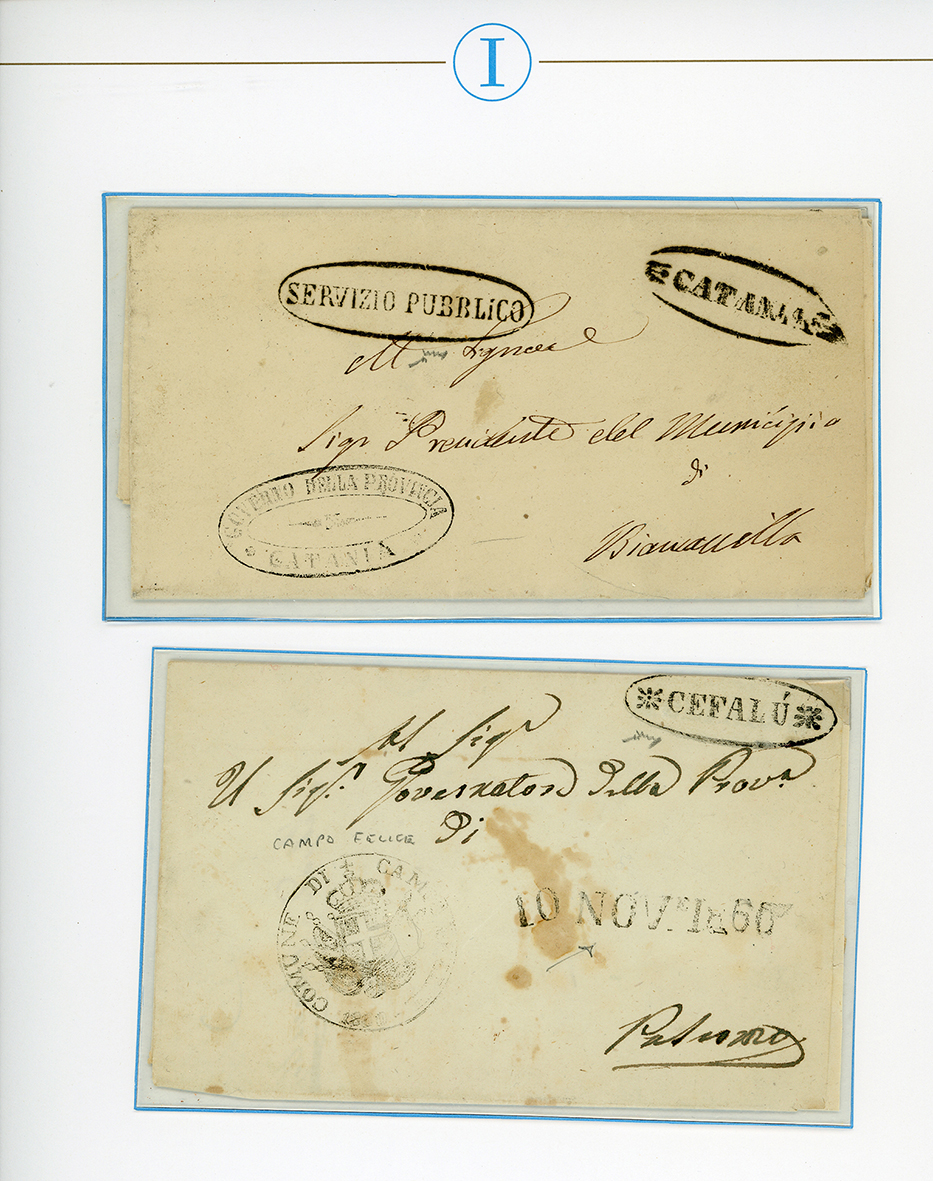 I
SERVIZIO PUBBLiCO
CATANIA
Al Signore
Sigr Presidente del Municipio
di
Biancavilla
GOVERNO DELLA PROVINCIA
CATANIA
CEFALÚ
Al Sigr
Il Sigr. Governatore Della Prova.
Di
CAMPO FELICE
COMUNE DI CAM
10 NOV. 1860
Palermo